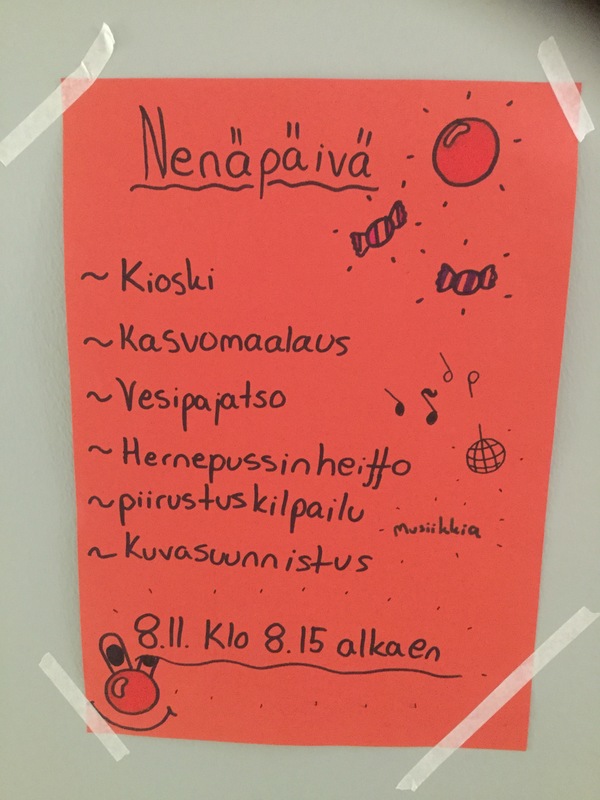 Nenäpäivä
~ Kioski
~ Kasvomaalaus
~ Vesipajatso
~ Hernepussinheitto
~ piirustuskilpailu
musiikkia
~ Kuvasuunnistus
8.11. Klo 8.15 alkaen